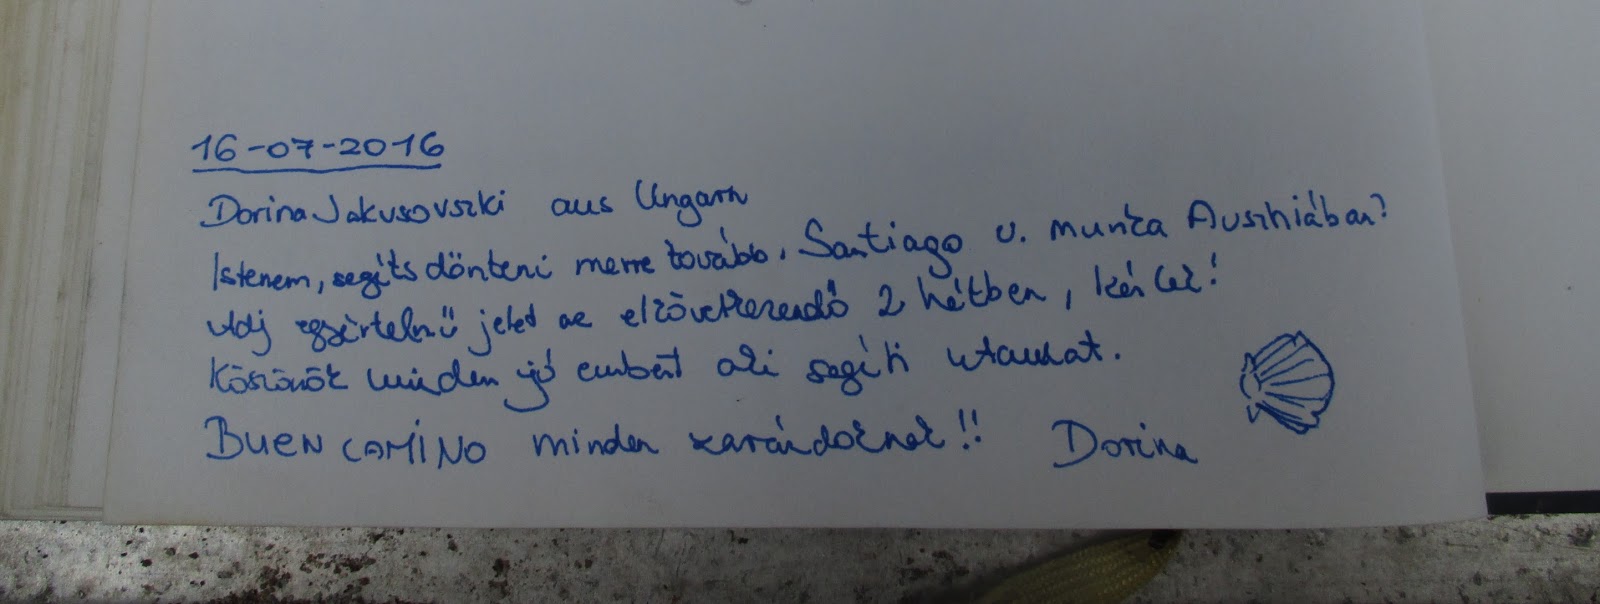 16-07-2016
Dorina Jakusovszki aus Ungarn
Istenem, segíts dönteni merre tovább. Santiago v. munka Ausztriában?
Adj egyértelmű jelet az elkövetkezendő 2 hétben, kérlek!
Köszönök minden jó embert aki segíti utamat.
BUEN CAMINO minden zarándoknak!! Dorina